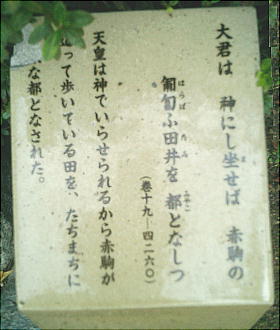 大君は 神にし坐せば 赤駒の
匍匐ふ田井を 都となしつ
(巻十九ー四二六〇)
天皇は神でいらせられるから赤駒が
って歩いている田を、たちまちに
な都となされた。